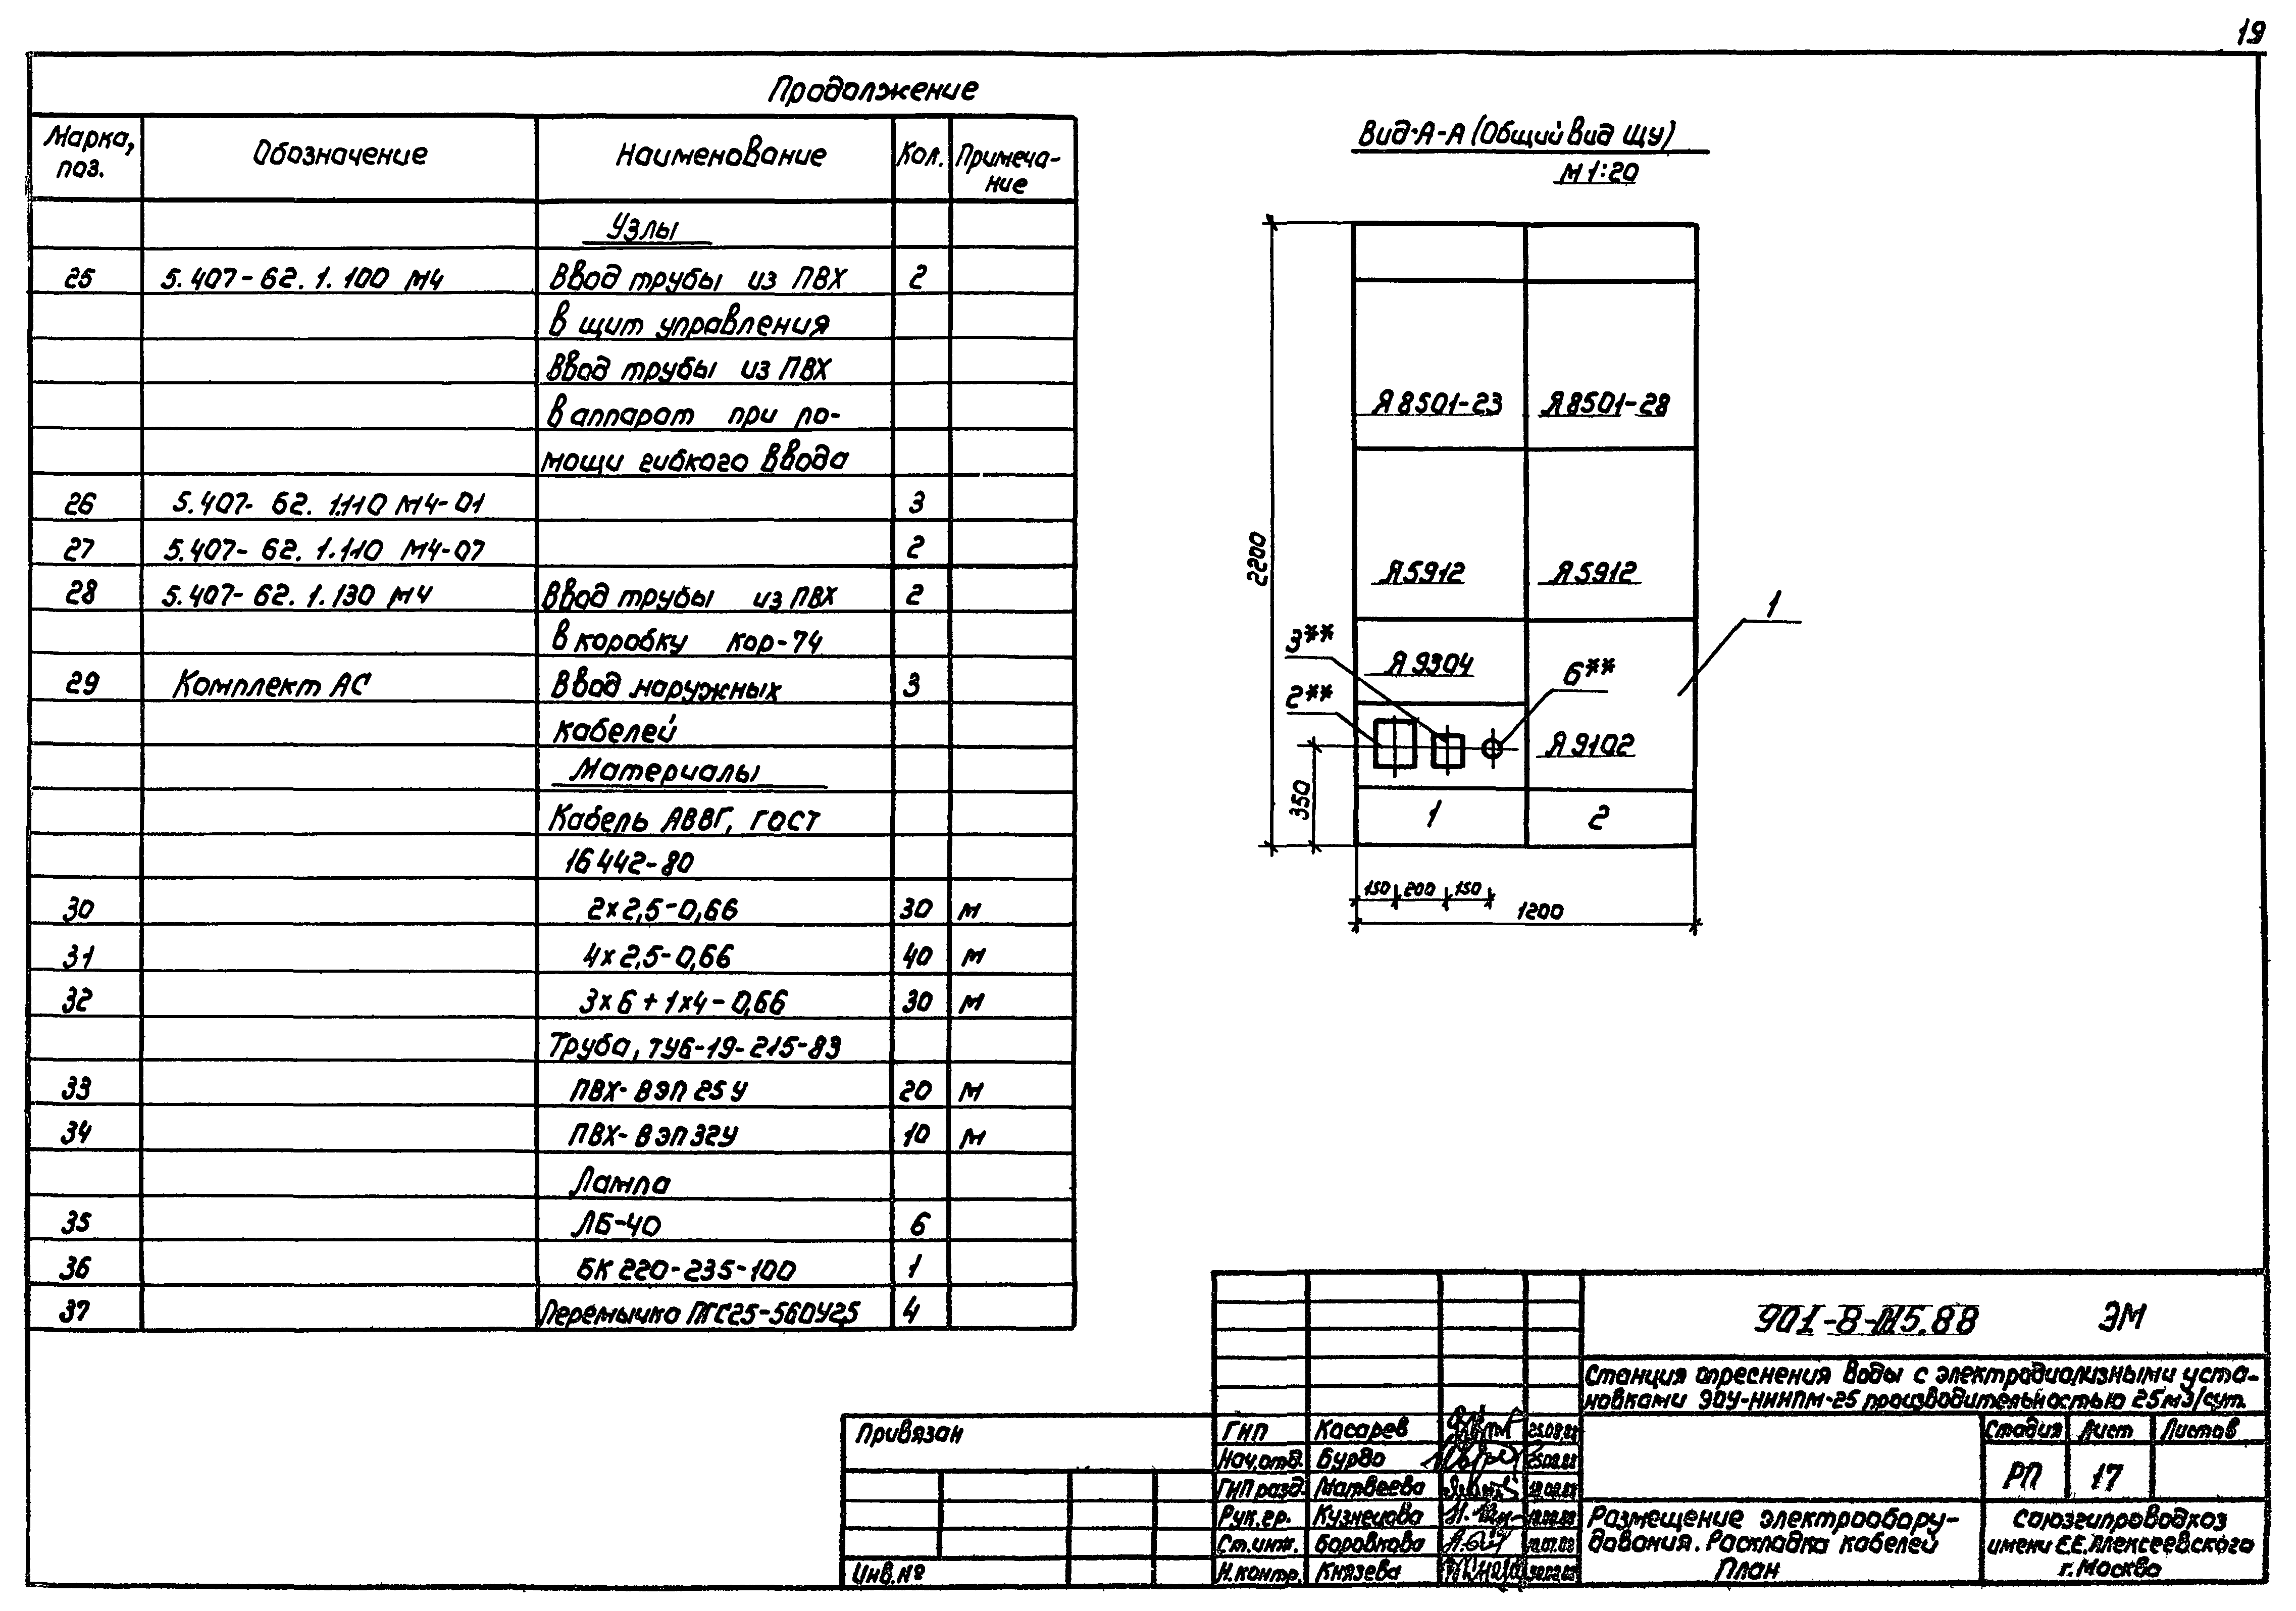 19
Продолжение
Марка, поз. Обозначение Наименование Кол. Примеча-
ние
Узлы
25 5.407-62.1.100 М4 Ввод трубы из ПВХ 2
в щит управления
Ввод трубы из ПВХ
в аппарат при по-
мощи гибкого ввода
26 5.407-62.1.110 М4-01 3
27 5.407-62.1.110 М4-07 2
28 5.407-62.1.130 М4 Ввод трубы из ПВХ 2
в коробку кор-74
29 Комплект АС Ввод наружных 3
кабелей
Материалы
Кабель АВВГ, ГОСТ
16442-80
30 2х2,5-0,66 30 м
31 4х2,5-0,66 40 м
32 3х6+1х4-0,66 30 м
Труба, ТУ6-19-215-83
33 ПВХ-ВЭП 25У 20 м
34 ПВХ-ВЭП 32У 10 м
Лампа
35 ЛБ-40 6
36 БК 220-235-100 1
37 Перемычка ПГС25-560У2,5 4
Вид А-А (Общий вид ЩУ)
М 1:20
2200
Я8501-23 Я8501-28
Я5912 Я5912
1
3** Я9304 6**
2**
Я9102
350
1 2
150 200 150
1200
901-8-15.88 ЭМ
Станция опреснения воды с электродиализными уста-
новками ЭОУ-НИИПМ-25 производительностью 25м3/сут.
Привязан
Инв.№
ГИП Касарев 25.08.88
Нач.отд. Бурдо 25.08.88
ГИП разд. Матвеева
Рук.гр. Кузнецова
Ст.инж. Боровкова
Н.контр. Князева
Стадия Лист Листов
РП 17
Размещение электрообору-
дования. Раскладка кабелей
План
Союзгипроводхоз
имени Е.Е. Алексеевского
г. Москва